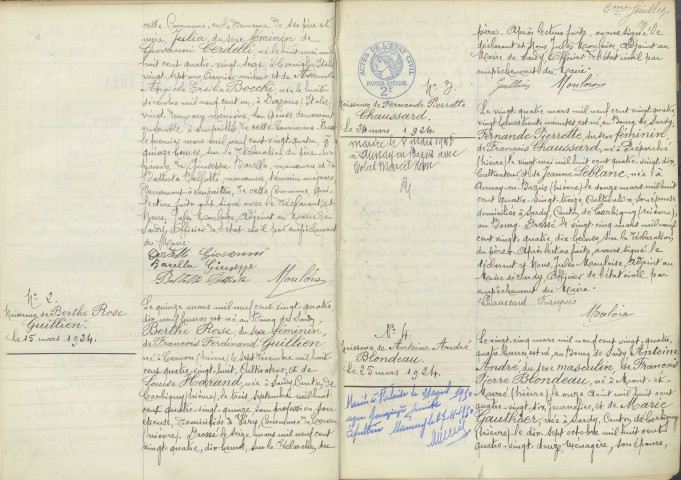 cette Commune, en la demeure de ses père et
mère Julia, du sexe féminin de
Giovanni Cerdelli, né le huit mai mil
huit cent quatre-vingt seize à (Italie)
vingt-sept ans et de Assunta
Angiola Ersilia Bocchi née le huit
décembre mil neuf cent un, à (Italie)
vingt deux ans
ensemble à de cette Commune. Dressé
le premier mars mil neuf cent vingt quatre,
quinze heures, sur la déclaration du père en
présence de Giuseppe Barella, manœuvre et de
Battista Belletti, manœuvre, témoins majeurs
demeurant à de cette Commune qui,
lecture faite ont signé avec le déclarant et
Nous, Jules Mouloise, Adjoint au Maire de
Sardy, Officier de l'état civil par empêchement
du Maire.
Cerdelli Giovanni
Barella Giuseppe
Moulois
N° 2.
Naissance de Berthe Rose
Guillien.
le 15 mars 1924.
Le quinze mars mil neuf cent vingt quatre,
dix heures est née au Bourg de Sardy,
Berthe Rose, du sexe féminin,
de François Ferdinand Guillien
né à (Nièvre), le sept Décembre mil huit
cent quatre-vingt-huit, Cultivateur, et de
Louise Harand, née à Sardy, Canton de
Corbigny (Nièvre), le trois septembre mil huit
cent quatre-vingt-quinze, sans profession, son
épouse, domiciliés à (Commune de
Nièvre). Dressé le seize mars mil neuf cent
vingt-quatre, dix heures, sur la déclaration du
2eme feuillet
père. Après lecture faite, avons signé le
déclarant et Nous Jules Mouloise, Adjoint au
Maire de Sardy, Officier de l'état civil par
empêchement du Maire.
Guillien Moulois
ACTES DE L'ÉTAT CIVIL
PAPIER SPÉCIAL
2F
N° 3.
Naissance de Fernande Pierrette
Chaussard.
le 20 mars 1924.
mariée le 8 mars 1945
à Aunay en Bazois avec
Marcel
Le vingt mars mil neuf cent vingt quatre,
vingt heures trente minutes est née au Bourg de Sardy,
Fernande Pierrette, du sexe féminin,
de François Chaussard, né à Epiry
(Nièvre) le vingt mai mil huit cent quatre-vingt dix,
Cultivateur et de Jeanne Leblanc, née à
Aunay-en-Bazois (Nièvre) le douze mars mil huit
cent quatre-vingt-treize, Cultivatrice, son épouse,
domiciliés à Sardy, Canton de Corbigny (Nièvre),
au Bourg. Dressé le vingt un mars mil neuf
cent vingt-quatre, dix heures, sur la déclaration
du père. Après lecture faite, avons signé le
déclarant et Nous Jules Mouloise, Adjoint au
Maire de Sardy, Officier de l'état civil par
empêchement du Maire.
Chaussard François
Moulois
N° 4.
Naissance de Antoine André
Blondeau.
le 25 mars 1924.
Marié à le 29 avril 1950
avec
Le vingt cinq mars mil neuf cent vingt quatre,
quatre heures, est né, au Bourg de Sardy, Antoine
André, du sexe masculin, de François
Pierre Blondeau, né à Mont-et-
Marré (Nièvre) le onze août mil huit cent
quatre-vingt-dix, journalier, et de Marie
Gauthier, née à Sardy, Canton de Corbigny
(Nièvre) le dix sept octobre mil huit cent
quatre-vingt-douze, Ménagère, son épouse,